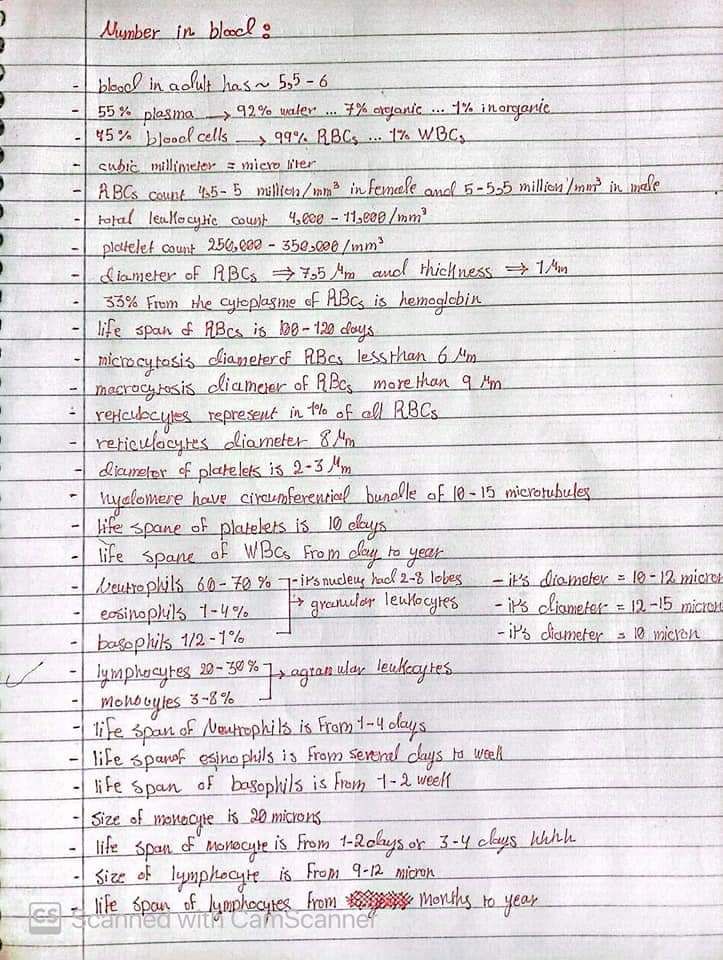 Number in blood :
- blood in adult has ~ 5,5 - 6
- 55% plasma → 92% water ... 7% organic ... 1% inorganic
- 45% blood cells → 99% RBCs ... 1% WBCs
- cubic millimeter = micro liter
- RBCs count 4,5 - 5 million/mm³ in female and 5 - 5,5 million/mm³ in male
- total leukocytic count 4,000 - 11,000/mm³
- platelet count 250,000 - 350,000/mm³
- diameter of RBCs ⇒ 7,5 Mm and thickness ⇒ 1 Mm
- 33% From the cytoplasme of RBCs is hemoglobin
- life span of RBCs is 100 - 120 days
- microcytosis diameter of RBCs less than 6 Mm
- macrocytosis diameter of RBCs more than 9 Mm
- reticulocytes represent in 1% of all RBCs
- reticulocytes diameter 8 Mm
- diameter of platelets is 2 - 3 Mm
- hyalomere have circumferential bundle of 10 - 15 microtubules
- life spane of platelets is 10 days
- life spane of WBCs From day to year
- Neutrophils 60 - 70 % - it's nucleus had 2-8 lobes - it's diameter = 10 - 12 micron
- eosinophils 1 - 4% → granular leukocytes - it's diameter = 12 - 15 micron
- basophils 1/2 - 1% - it's diameter = 10 micron
- lymphocytes 20 - 30% → agranular leukocytes
- monocytes 3 - 8%
- life span of Neutrophils is From 1 - 4 days
- life span of esinophils is From several days to week
- life span of basophils is From 1 - 2 week
- Size of monocyte is 20 microns
- life span of monocyte is From 1 - 2 days or 3 - 4 days hhhh
- Size of lymphocyte is From 9 - 12 micron
- life span of lymphocytes From months to year
CS Scanned with CamScanner